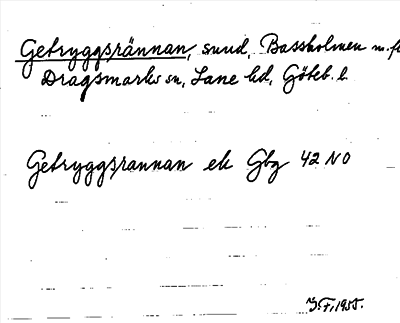 Getryggsrännan, sund, Bassholmen m.fl
Dragsmarks sn, Lane hd, Göteb. l.
Getryggsrannan ek Gbg 42 NO
1955.